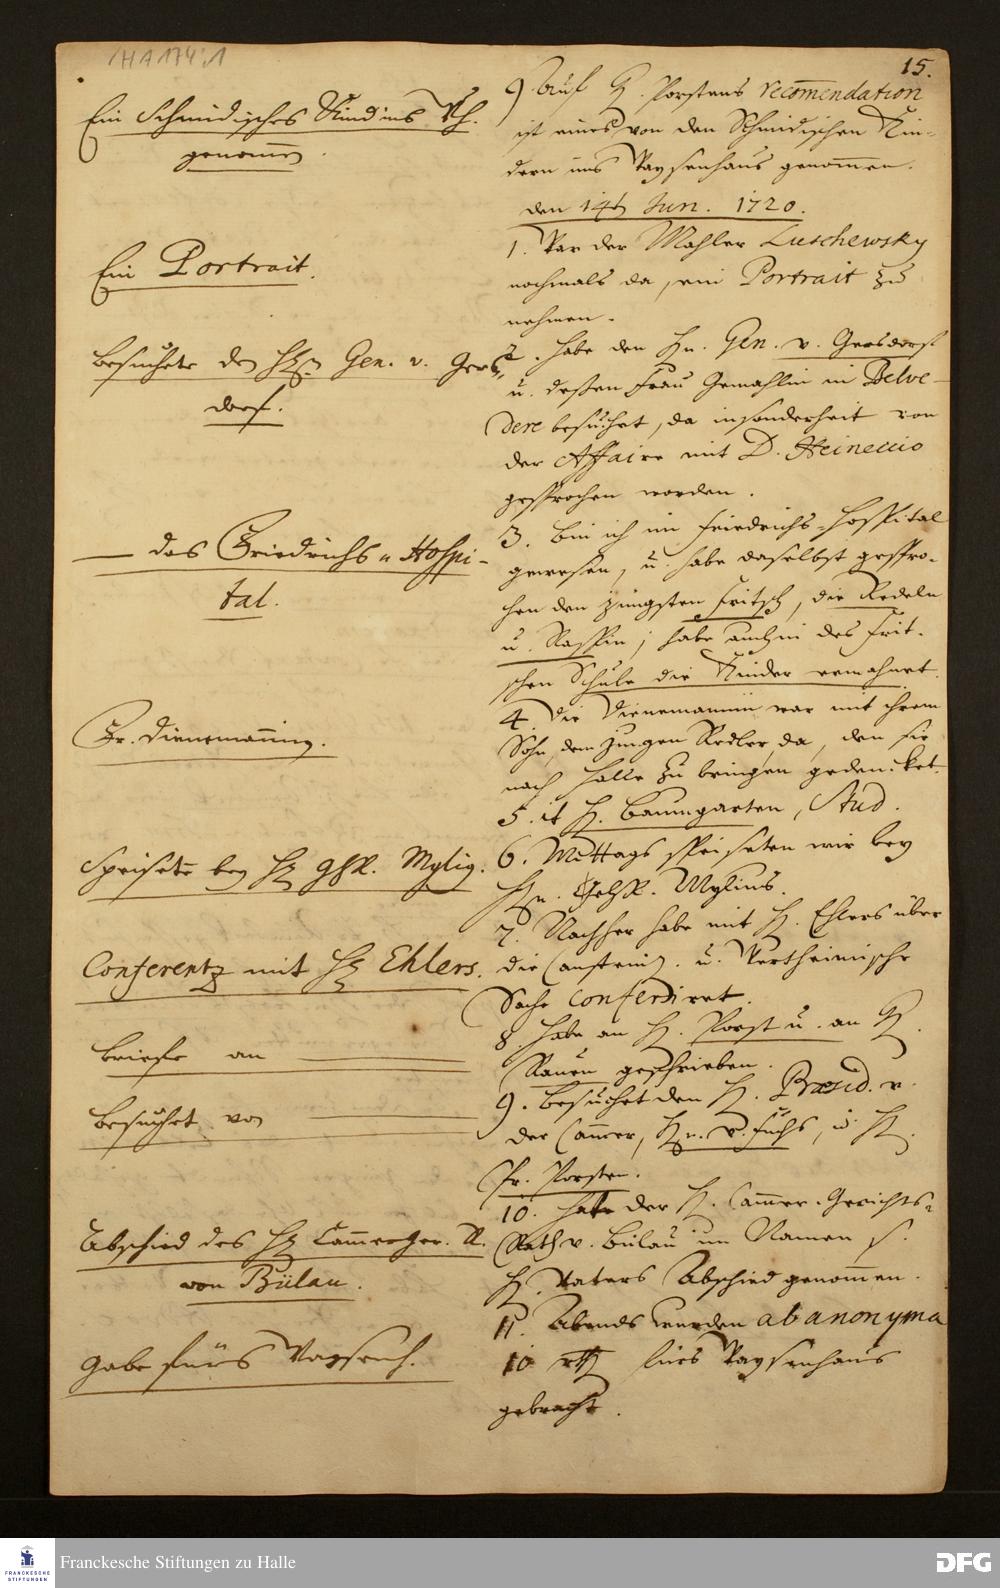 HA 174:1
15.
Ein Schmidisches Kind ins Wh.
genommen.
Ein Portrait.
Besuchete den HEn Gen. v. Gers-
dorf.
— das Friedrichs-Hospi-
tal.
Fr. Dienemannin.
Speisete bey H. Mylig.
Conferentz mit H Ehlers.
Briefe an
Besuchet von
Abschied des H Cammerger. R.
von Bülau.
Gabe fürs Waysenh.
9. Auf H. Porstens recommendation
ist eines von den Schmidischen Kin-
dern ins Waysenhaus genommen.
den 14t Jun. 1720.
1. War der Mahler Luschewsky
nochmals da, ein Portrait zu
nehmen.
2. Habe den Hn. Gen. v. Gersdorf
u. deßen Frau Gemahlin in Belve-
dere besuchet, da insonderheit von
der Affaire mit D. Heineccio
gesprochen worden.
3. Bin ich im Friedrichs-Hospital
gewesen, u. habe daselbst gespro-
chen den jüngsten Fritsch, die Redeln
u. Raspin; habe auch in des Frit-
schen Schule die Kinder ermahnet.
4. Die Dienemannin war mit ihrem
Sohn, dem jungen Redler, da, den sie
nach Halle zu bringen gedencket.
5. it H. Baumgarten, Stud.
6. Mittags speiseten wir bey
Hn. Mylius.
7. Nachher habe mit H. Ehlers über
die Cansteini. u. Wertheimische
Sache conferiret.
8. Habe an H. Porst u. an H.
Rauen geschrieben.
9. Besuchet den H. Præsid. v.
der Cammer, Hn. v. Fuchs, u. H.
Pr. Porsten.
10. Hate der H. Cammer-Gerichts-
Rath v. Bülau im Namen s.
H. Vaters Abschied genommen.
11. Abends wurden ab anonyma
10 rth fürs Waysenhaus
gebracht.
Franckesche Stiftungen zu Halle
FRANCKESCHE
STIFTUNGEN
DFG